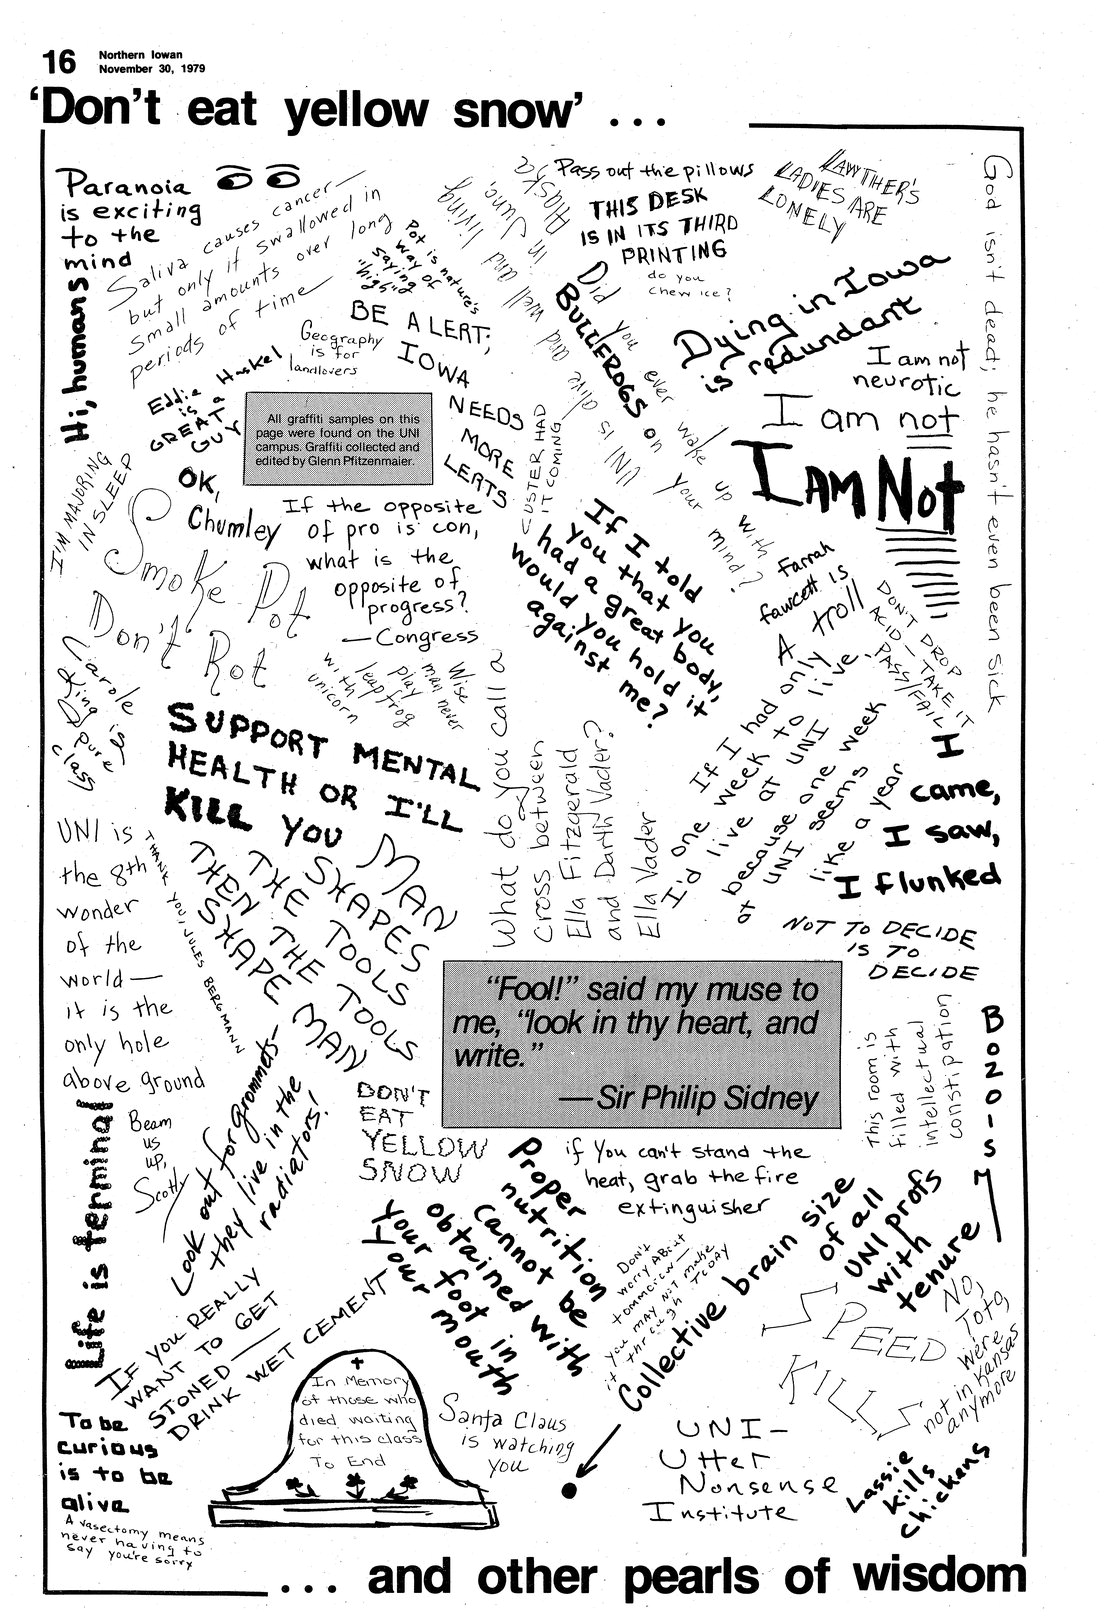 16
Northern Iowan
November 30, 1979
'Don't eat yellow snow' ...
Paranoia
is exciting
to the
mind
Saliva causes cancer—
but only if swallowed in
small amounts over long
periods of time
Pot is nature's
way of
saying
"high"
UNI is alive and well and living
in Juneau, Alaska
Pass out the pillows
THIS DESK
IS IN ITS THIRD
PRINTING
do you
chew ice?
LAWTHER'S
LADIES ARE
LONELY
God isn't dead; he hasn't even been sick
Hi, humans
BE A LERT;
IOWA
NEEDS
MORE
LERTS
Geography
is for
landlovers
Did you ever wake up with
BULLFROGS on your mind?
Dying in Iowa
is redundant
I am not
neurotic
I am not
I AM Not
Eddie Haskel
is a
GREAT
GUY
All graffiti samples on this
page were found on the UNI
campus. Graffiti collected and
edited by Glenn Pfitzenmaier.
CUSTER HAD
IT COMING
I'M MAJORING
IN SLEEP
OK,
Chumley
If the opposite
of pro is con,
what is the
opposite of
progress?
—Congress
Smoke Pot
Don't Rot
If I told
you that you
had a great body,
would you hold it
against me?
Farrah
fawcett is
A troll
DON'T DROP
ACID—TAKE IT
PASS/FAIL
Carole
King is
pure
class
Wise
man never
play
leapfrog
with
unicorn
SUPPORT MENTAL
HEALTH OR I'LL
KILL YOU
What do you call a
cross between
Ella Fitzgerald
and Darth Vader?
Ella Vader
If I had only
one week to live,
I'd live at UNI
because one week
at UNI seems
like a year
I
came,
I saw,
I flunked
UNI is
the 8th
wonder
of the
world—
it is the
only hole
above ground
THANK YOU, JULES BERGMANN
MAN
SHAPES
THE TOOLS
THEN THE TOOLS
SHAPE MAN
NOT TO DECIDE
IS TO
DECIDE
"Fool!" said my muse to
me, "look in thy heart, and
write."
—Sir Philip Sidney
This room is
filled with
intellectual
constipation
BOZO-ISM
Life is terminal
Beam
us
up,
Scotty
Look out for grommets—
they live in the
radiators!
DON'T
EAT
YELLOW
SNOW
Proper
nutrition
cannot be
obtained with
your foot in
your mouth
if you can't stand the
heat, grab the fire
extinguisher
Don't
worry About
tomorrow—
you may not make
it through TODAY
Collective brain size
of all
UNI profs
with
tenure
SPEED
KILLS
No,
Toto,
we're
not in Kansas
anymore
IF YOU REALLY
WANT TO GET
STONED—
DRINK WET CEMENT
In Memory
of those who
died waiting
for this class
To End
Santa Claus
is watching
you
UNI—
Utter
Nonsense
Institute
Lassie
kills
chickens
To be
curious
is to be
alive
A vasectomy means
never having to
say you're sorry
... and other pearls of wisdom